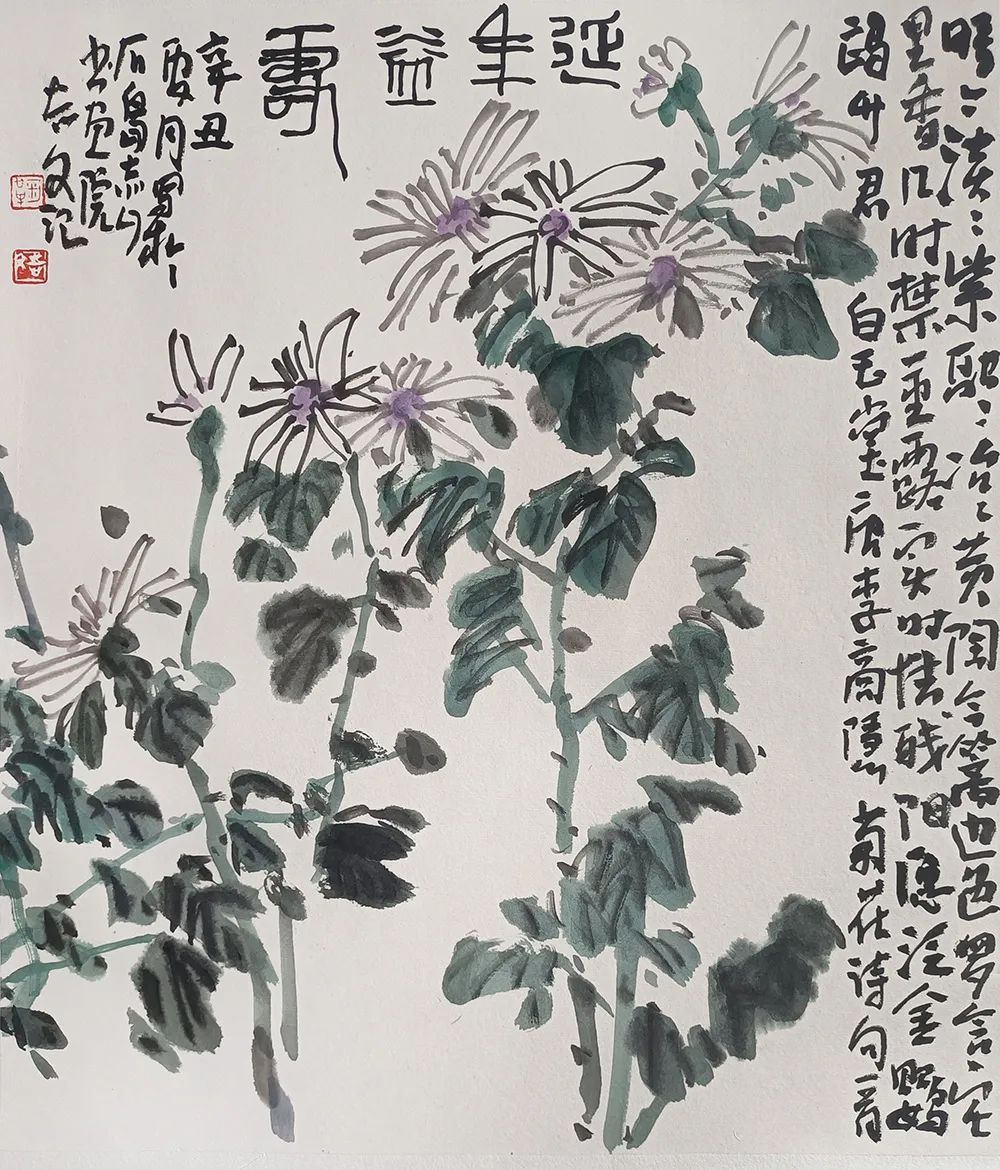 暗〻淡〻紫融〻冶〻黄陶令篱边色罗含宅
里香几时禁重露实时怯残阳愿泛金鹦
鹉升君白玉堂 唐李商隐菊花诗句一首
延年益壽
辛丑
夏月写於
石岛赤山
书画院
吉文记